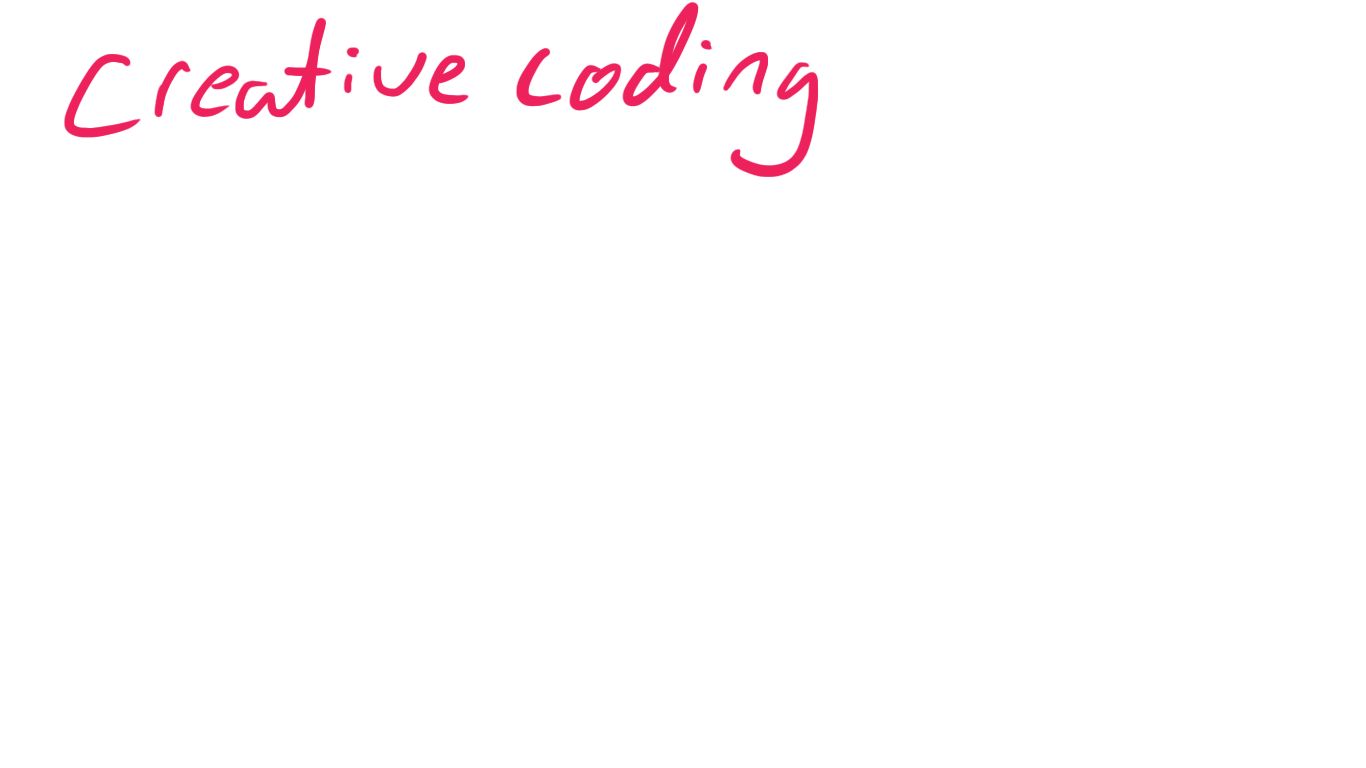 Creative coding